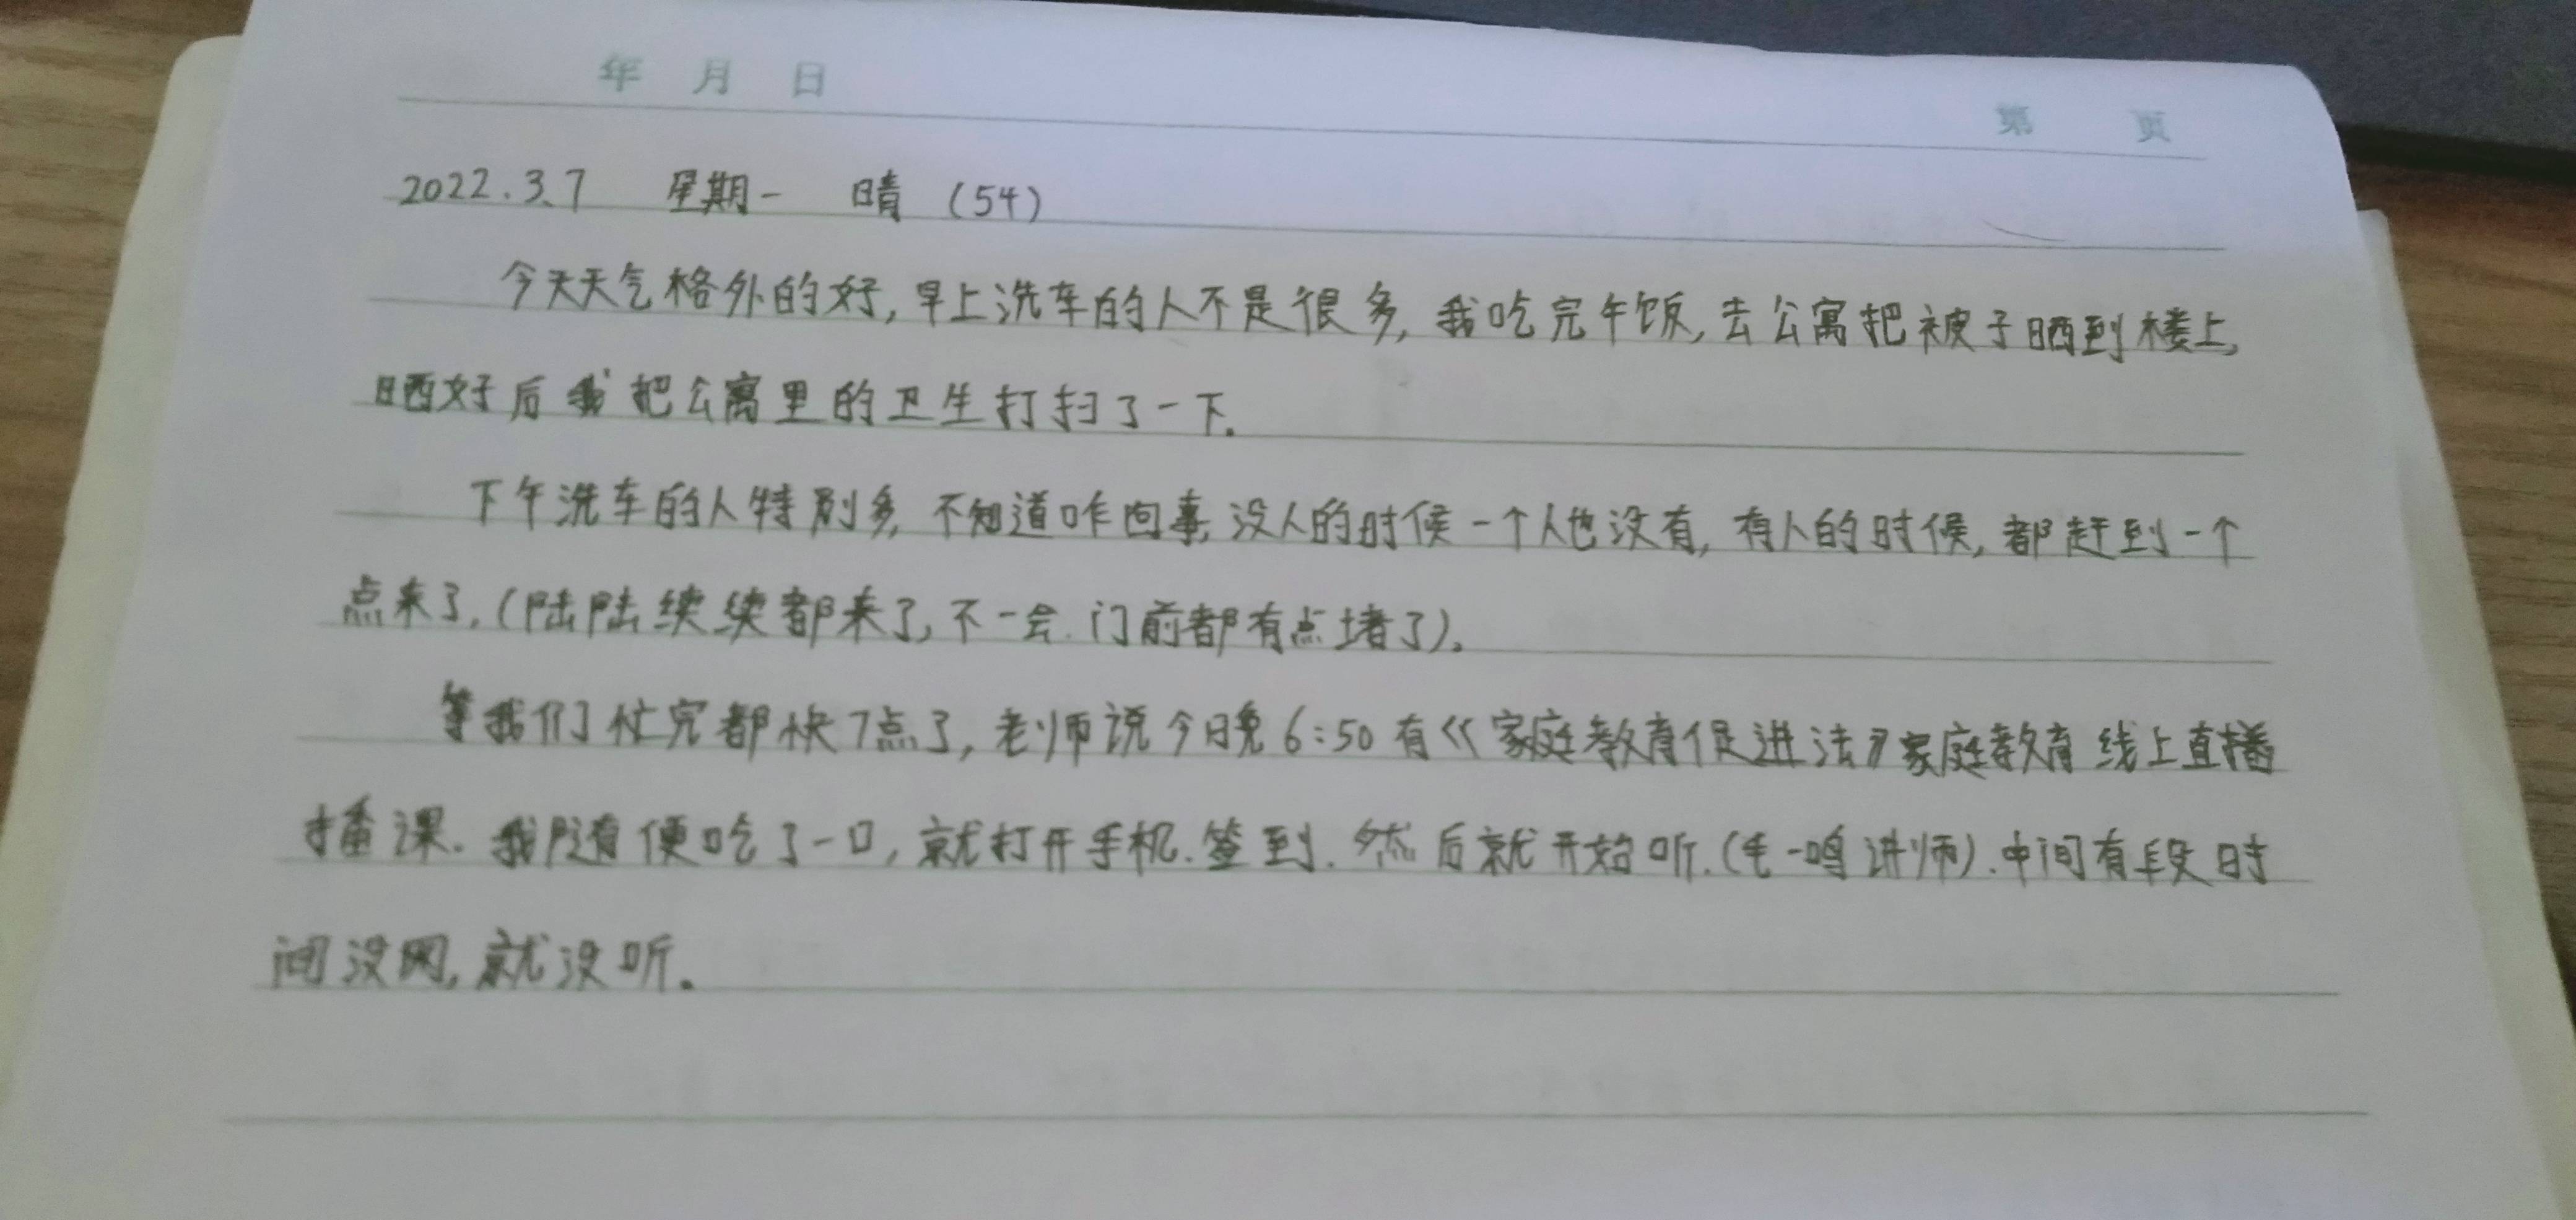 年 月 日
第 页
2022.3.7 星期一 晴 (54)
今天天气格外的好,早上洗车的人不是很多,我吃完午饭,去公寓把被子晒到楼上,
晒好后我把公寓里的卫生打扫了一下.
下午洗车的人特别多,不知道咋回事,没人的时候一个人也没有,有人的时候,都赶到一个
点来了,(陆陆续续都来了,不一会.门前都有点堵了)。
等我们忙完都快7点了,老师说今日晚6:50有《家庭教育促进法》家庭教育线上直播
播课.我随便吃了一口,就打开手机.签到.然后就开始听.(毛一鸣讲师).中间有段时
间没网,就没听。